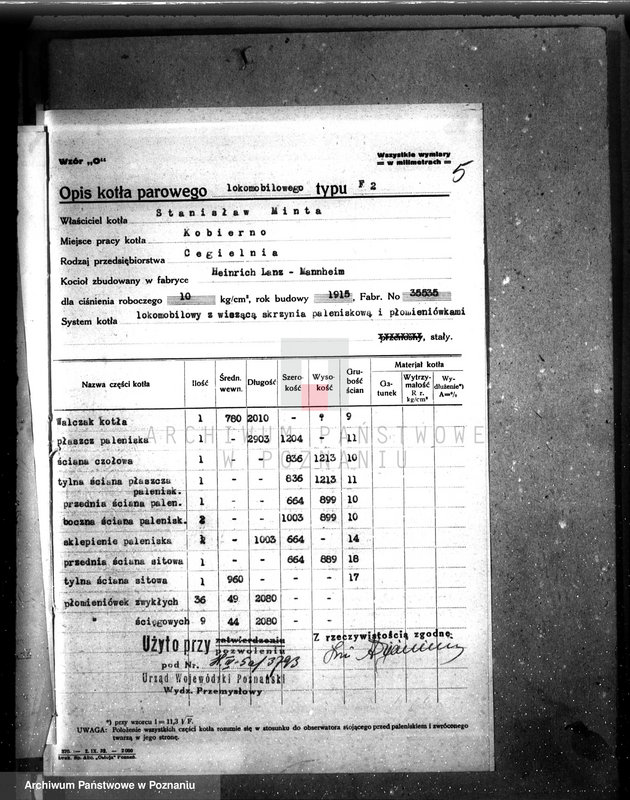 Wzór „O"
Wszystkie wymiary
w milimetrach
5
Opis kotła parowego lokomobilowego typu F 2
Właściciel kotła Stanisław Minta
Miejsce pracy kotła Kobierno
Rodzaj przedsiębiorstwa Cegielnia
Kocioł zbudowany w fabryce Heinrich Lanz - Mannheim
dla ciśnienia roboczego 10 kg/cm², rok budowy 1915, Fabr. No 35535
System kotła lokomobilowy z wiszącą skrzynia paleniskową i płomieniówkami
przenośny, stały.
Nazwa części kotła Ilość Średn. wewn. Długość Szerokość Wysokość Grubość ścian Materjał kotła
Gatunek Wytrzymałość R r. kg/cm² Wydłużenie*) A=%
Walczak kotła 1 780 2010 - - 9
płaszcz paleniska 1 - 2903 1204 - 11
ściana czołowa 1 - - 836 1213 10
tylna ściana płaszcza palenisk. 1 - - 836 1213 11
przednia ściana palen. 1 - - 664 899 10
boczna ściana palenisk. 2 - - 1003 899 10
sklepienie paleniska 1 - 1003 664 - 14
przednia ściana sitowa 1 - - 664 889 18
tylna ściana sitowa 1 960 - - - 17
płomieniówek zwykłych 36 49 2080 - -
" ściągowych 9 44 2080 - -
Użyto przy zatwierdzeniu
pozwoleniu
pod Nr.
Urząd Wojewódzki Poznański
Wydz. Przemysłowy
Z rzeczywistością zgodne:
*) przy wzorcu l = 11,3 √ F.
UWAGA: Położenie wszystkich części kotła rozumie się w stosunku do obserwatora stojącego przed paleniskiem i zwróconego
twarzą w jego stronę.
370. — 2. IX. 32. — 2000
ARCHIWUM PAŃSTWOWE
W POZNANIU
Archiwum Państwowe w Poznaniu